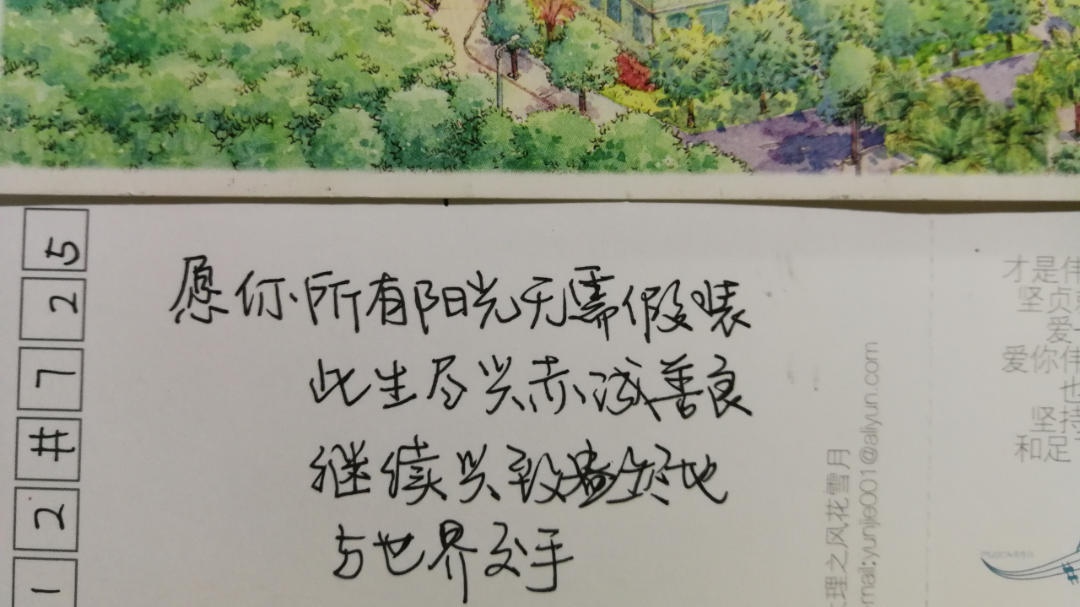 愿你所有阳光无需假装
此生尽兴赤诚善良
继续兴致盎然地
与世界交手
5
2
7
#
2
1
才是伟
坚贞
爱
爱你伟
也
坚持
和足
理之风花雪月
mail:yunjie001@aliyun.com